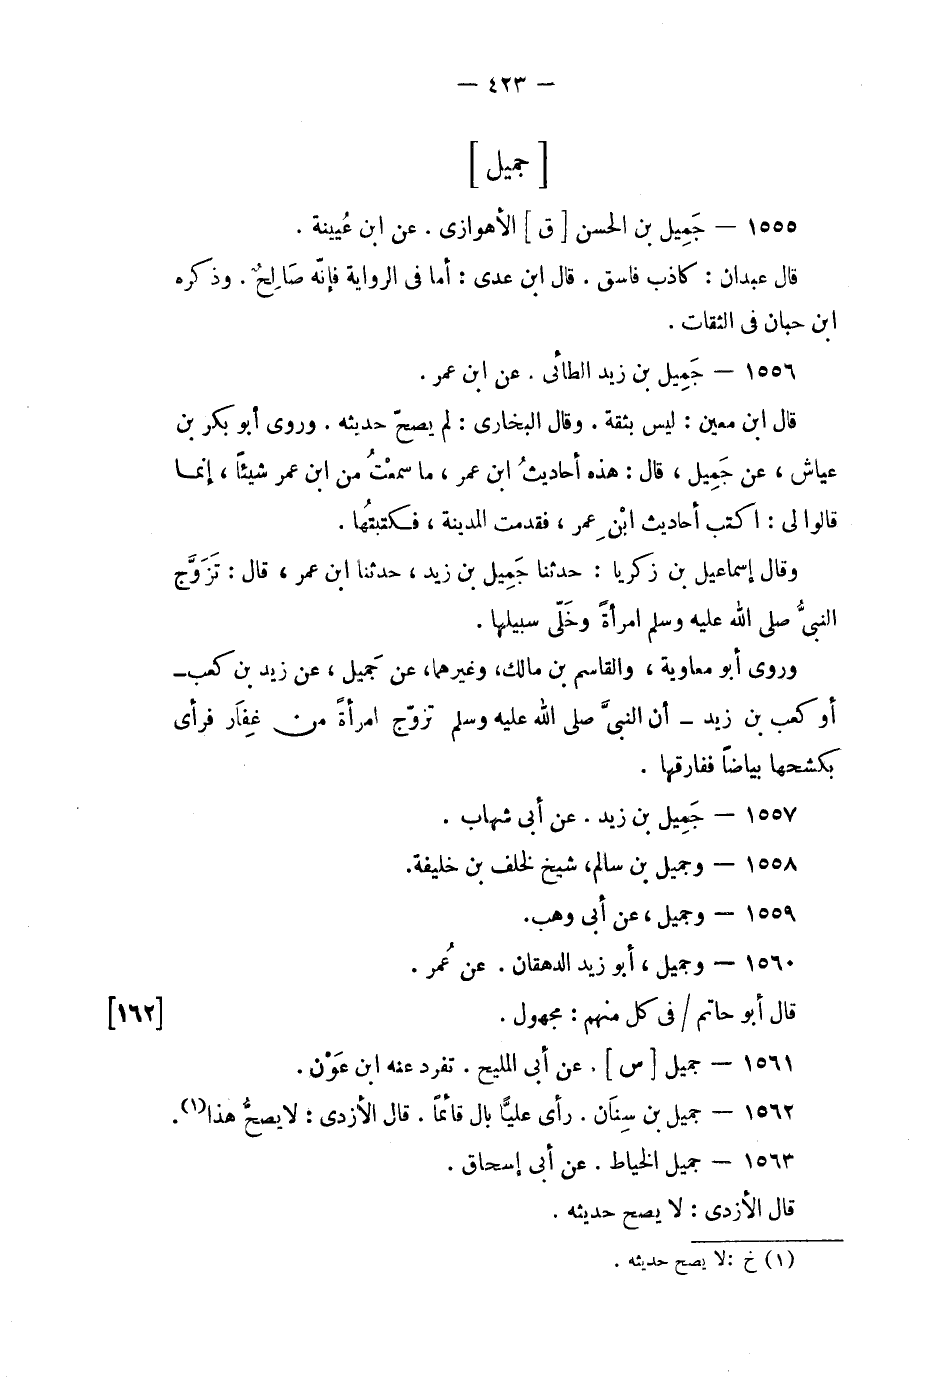 — ٤٢٣ —
[ جميل ]
١٥٥٥ — جَمِيل بن الحسن [ ق ] الأهوازى . عن ابن عُيينة .
قال عبدان : كاذب فاسق . قال ابن عدى : أما فى الرواية فإنّه صَالِحٌ . وذكره
ابن حبان فى الثقات .
١٥٥٦ — جَمِيل بن زيد الطائى . عن ابن عمر .
قال ابن معين : ليس بثقة . وقال البخارى : لم يصحّ حديثه . وروى أبو بكر بن
عياش ، عن جَمِيل ، قال : هذه أحاديثُ ابن عمر ، ما سمعْتُ من ابن عمر شيئاً ، إنما
قالوا لى : اكتب أحاديث ابْنِ عمر ، فقدمت المدينة ، فكتبتُها .
وقال إسماعيل بن زكريا : حدثنا جَمِيل بن زيد ، حدثنا ابن عمر ، قال : تَزَوَّج
النبىُّ صلى الله عليه وسلم امرأةً وخَلَّى سبيلها .
وروى أبو معاوية ، والقاسم بن مالك، وغيرهما، عن جَميل ، عن زيد بن كعب ـ
أو كعب بن زيد ـ أن النبىَّ صلى الله عليه وسلم تزوّج امرأةً من غِفَار فرأى
بكشحها بياضاً ففارقها .
١٥٥٧ — جَمِيل بن زيد . عن أبى شهاب .
١٥٥٨ — وجميل بن سالم، شيخ لخلف بن خليفة.
١٥٥٩ — وجميل ، عن أبى وهب.
١٥٦٠ — وجميل ، أبو زيد الدهقان . عن عُمر .
قال أبو حاتم / فى كل منهم : مجهول . [١٦٢]
١٥٦١ — جميل [ س ] . عن أبى المليح . تفرد عنه ابن عَوْن .
١٥٦٢ — جميل بن سِنَان . رأى عليًّا بال قائمًا . قال الأزدى : لا يصحُّ هذا(١).
١٥٦٣ — جميل الخياط . عن أبى إسحاق .
قال الأزدى : لا يصح حديثه .
(١) خ : لا يصح حديثه .